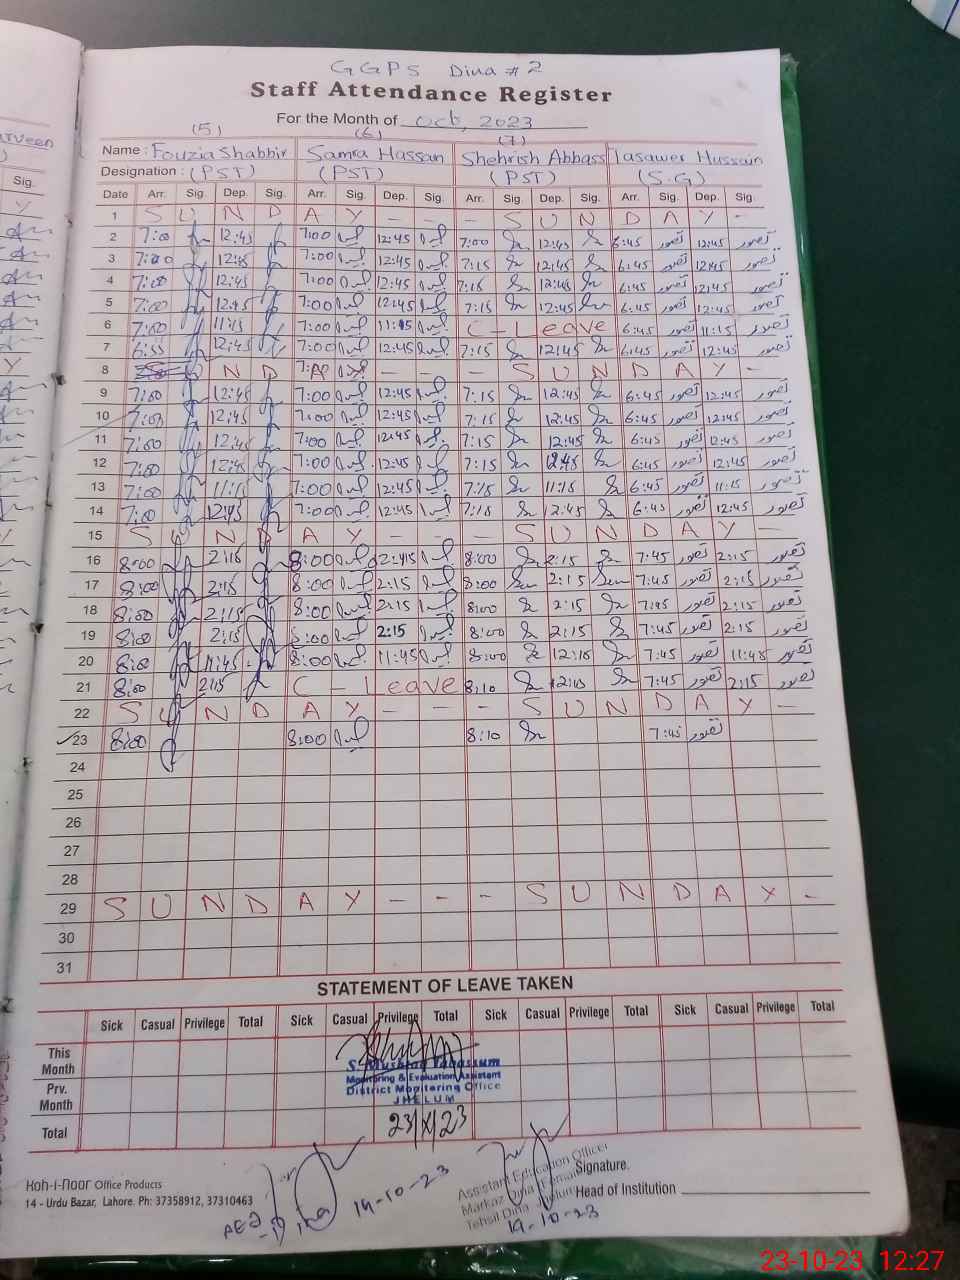 GGPS Dina # 2
Staff Attendance Register
For the Month of Oct, 2023
(5) (6) (7)
Name : Fouzia Shabbir Samra Hassan Shehrish Abbass Tasawer Hussain
Designation : (PST) (PST) (PST) (S.G)
Date Arr. Sig. Dep. Sig. Arr. Sig. Dep. Sig. Arr. Sig. Dep. Sig. Arr. Sig. Dep. Sig.
1 S U N D A Y - - - S U N D A Y -
2 7:00 12:45 7:00 12:45 7:00 12:45 6:45 تصور 12:45 تصور
3 7:00 12:45 7:00 12:45 7:15 12:45 6:45 تصور 12:45 تصور
4 7:00 12:45 7:00 12:45 7:15 12:45 6:45 تصور 12:45 تصور
5 7:00 12:45 7:00 12:45 7:15 12:45 6:45 تصور 12:45 تصور
6 7:00 11:15 7:00 11:15 C - Leave 6:45 تصور 11:15 تصور
7 6:55 12:45 7:00 12:45 7:15 12:45 6:45 تصور 12:45 تصور
8 N D - - - S U N D A Y -
9 7:00 12:45 7:00 12:45 7:15 12:45 6:45 تصور 12:45 تصور
10 7:00 12:45 7:00 12:45 7:15 12:45 6:45 تصور 12:45 تصور
11 7:00 12:45 7:00 12:45 7:15 12:45 6:45 تصور 12:45 تصور
12 7:00 12:45 7:00 12:45 7:15 12:45 6:45 تصور 12:45 تصور
13 7:00 11:15 7:00 12:45 7:15 11:15 6:45 تصور 11:15 تصور
14 7:00 12:45 7:00 12:45 7:15 12:45 6:45 تصور 12:45 تصور
15 S U N D A Y - - - S U N D A Y -
16 8:00 2:15 8:00 8:00 2:15 7:45 تصور 2:15 تصور
17 8:00 2:15 8:00 2:15 8:00 2:15 7:45 تصور 2:15 تصور
18 8:00 2:15 8:00 2:15 8:00 2:15 7:45 تصور 2:15 تصور
19 8:00 2:15 8:00 2:15 8:00 2:15 7:45 تصور 2:15 تصور
20 8:00 11:45 8:00 11:45 8:00 12:15 7:45 تصور 11:45 تصور
21 8:00 2:15 C - Leave 8:10 7:45 تصور 2:15 تصور
22 S U N D A Y - - - S U N D A Y -
23 8:00 8:00 8:10 7:45 تصور
24
25
26
27
28
29 S U N D A Y - - - S U N D A Y -
30
31
STATEMENT OF LEAVE TAKEN
Sick Casual Privilege Total Sick Casual Privilege Total Sick Casual Privilege Total Sick Casual Privilege Total
This Month
Prv. Month
Total
Monitoring & Evaluation Assistant
District Monitoring Office
JHELUM
23/X/23
Koh-i-Noor Office Products
14 - Urdu Bazar, Lahore. Ph: 37358912, 37310463
AEO Dina
19-10-23
Assistant Education Officer
Markaz Dina (Female)
Tehsil Dina
19-10-23
Signature.
Head of Institution
23-10-23 12:27